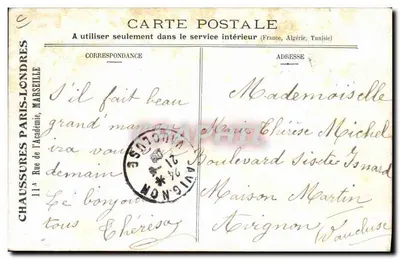 CARTE POSTALE
A utiliser seulement dans le service intérieur (France, Algérie, Tunisie)
CORRESPONDANCE
ADRESSE
CHAUSSURES PARIS-LONDRES
11A Rue de l'Académie, MARSEILLE
S'il fait beau
grand' maman
ira vous
demain
bonjour
tous Thérèse
Mademoiselle
Marie Thérèse Michel
Boulevard Sixte Isnard
Maison Martin
Avignon
Vaucluse
AVIGNON
VAUCLUSE
24
21